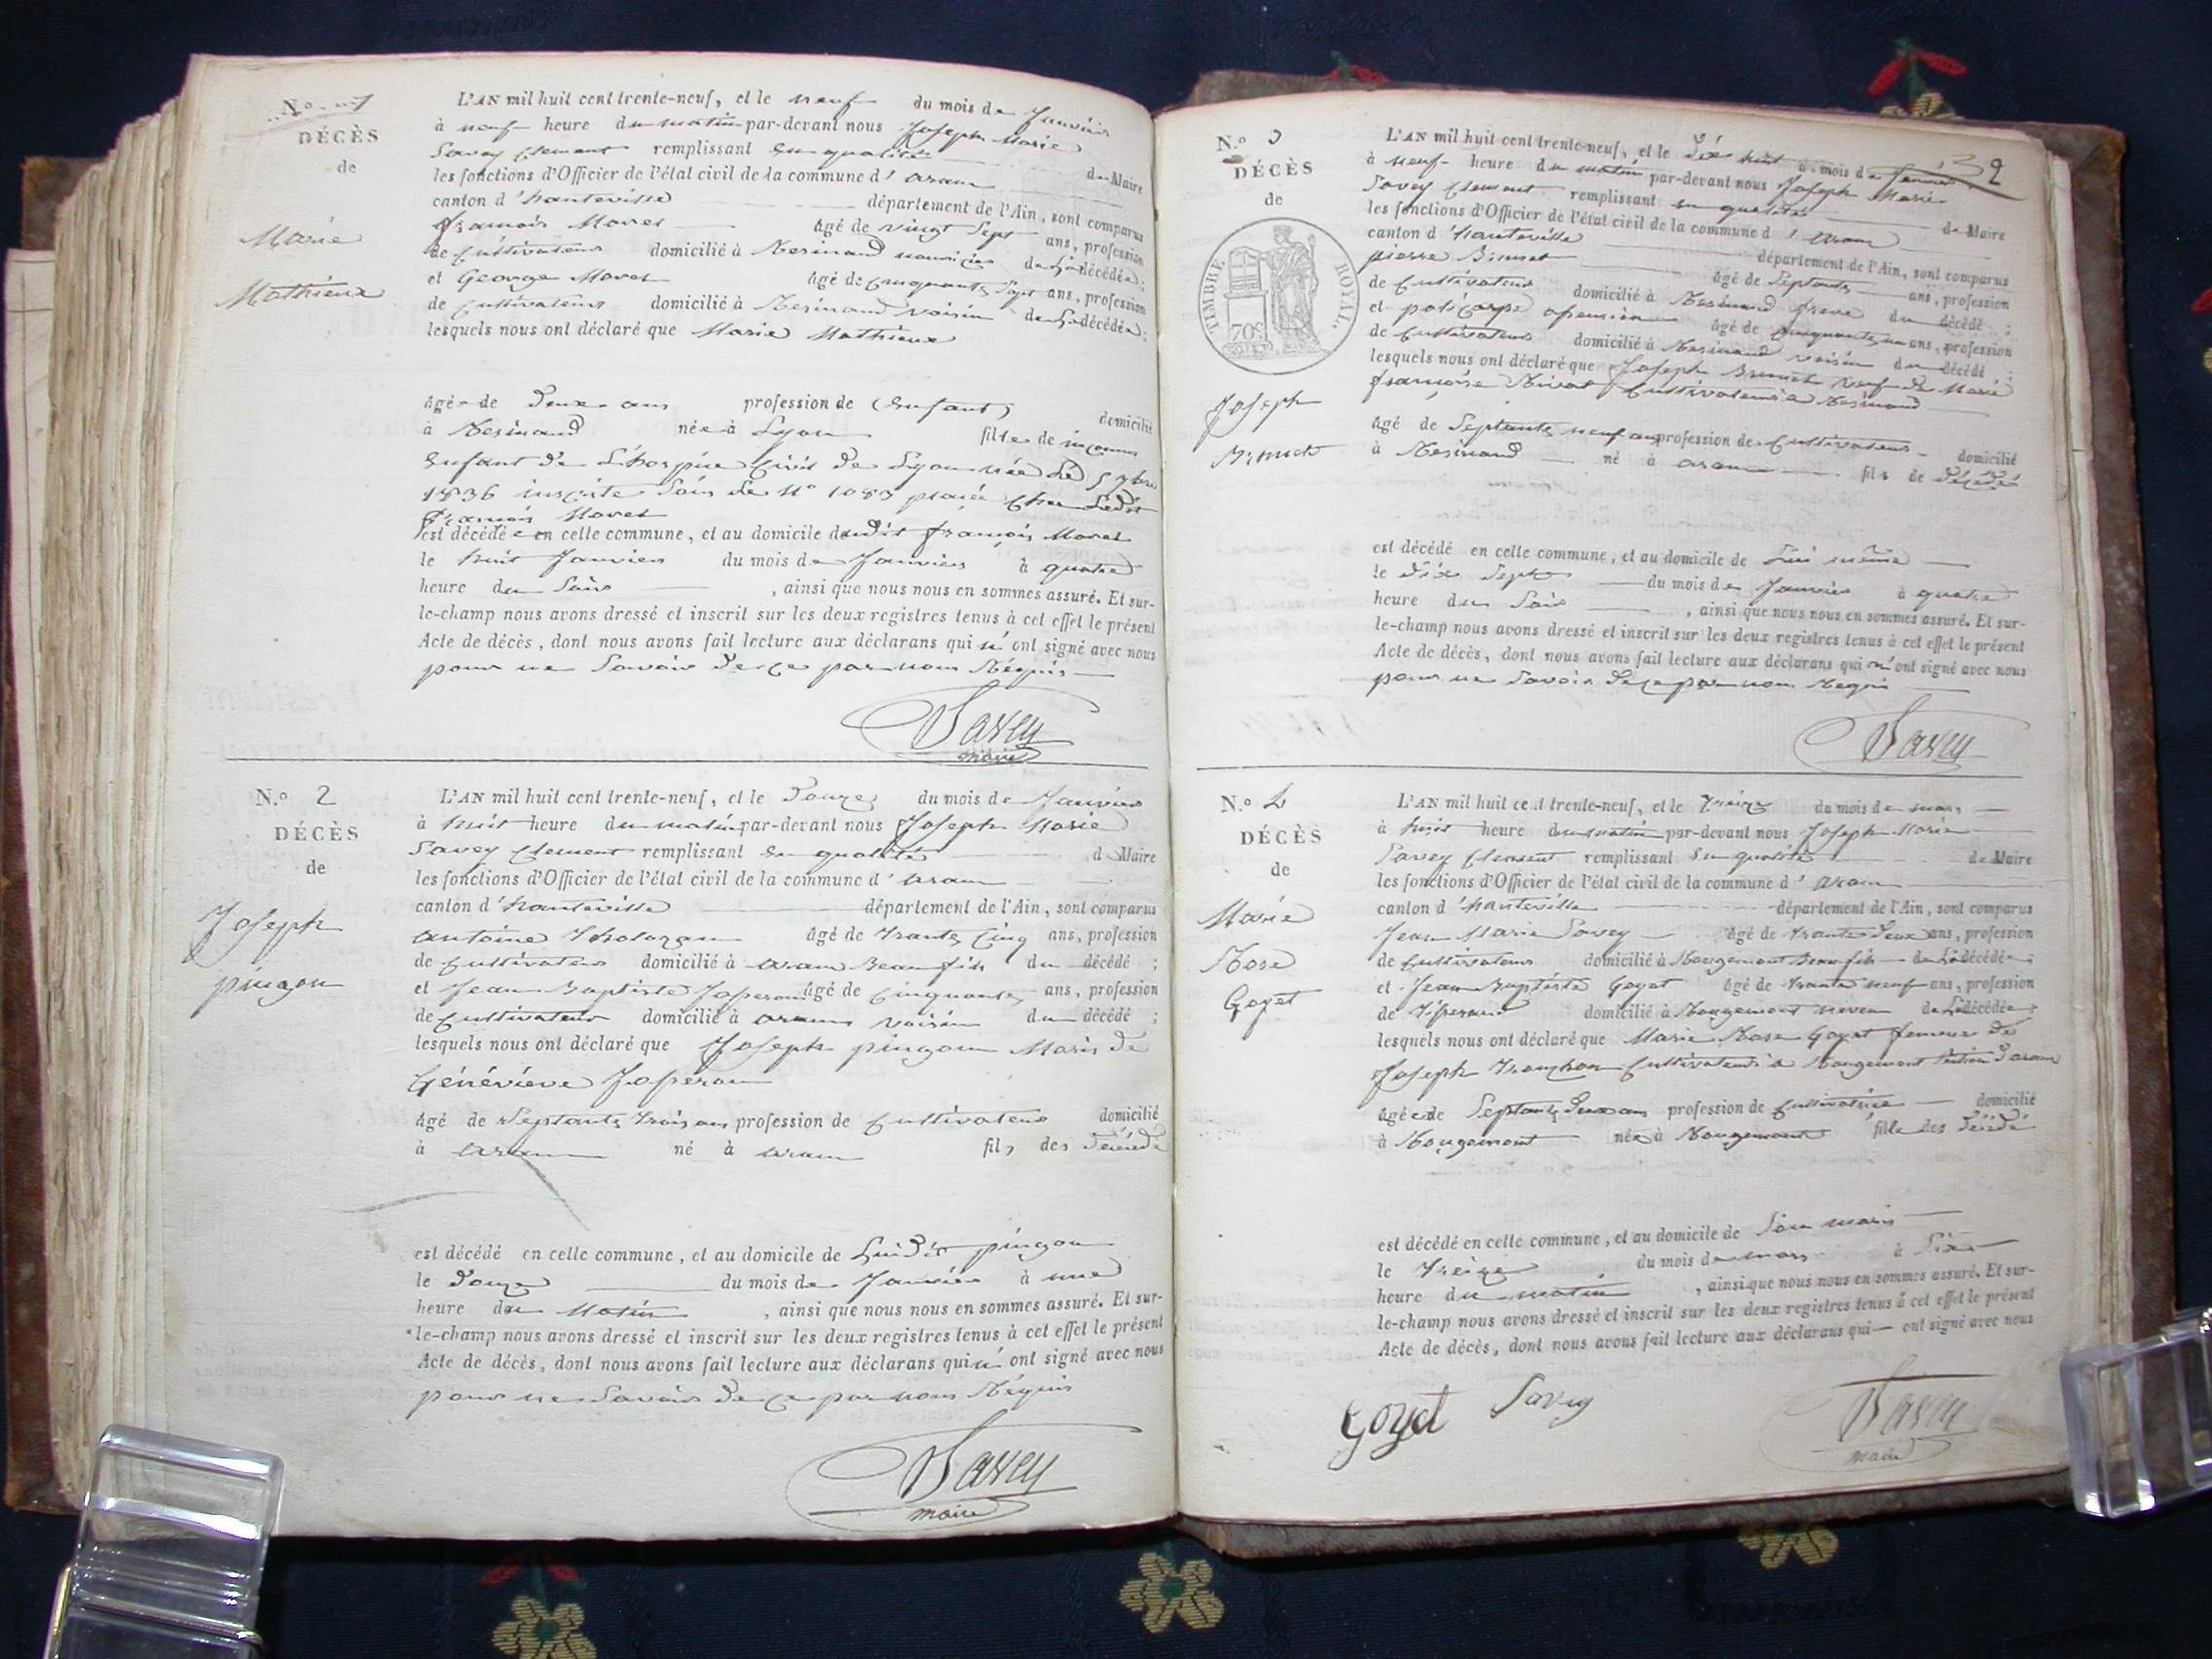 N.º 1
DÉCÈS
de
Marie
Mathieux
L'AN mil huit cent trente-neuf, et le neuf du mois de Janvier
à neuf heure du matin par-devant nous Joseph Marie
Savey Clement remplissant en qualité de Maire
les fonctions d'Officier de l'état civil de la commune d'aran
canton d'hauteville département de l'Ain, sont comparus
françois Moret âgé de vingt Sept ans, profession
de Cultivateur domicilié à Resinand nouricier de la décédée;
et George Moret âgé de Cinquante Sept ans, profession
de Cultivateur domicilié à Resinand voisin de la décédée;
lesquels nous ont déclaré que Marie Mathieux
âgée de deux ans profession de (Enfant) domicilié
à Resinand née à Lyon fille de inconnus
Enfant de L'hospice Civil de Lyon née Le 5
1836 inscrite Sous Le Nº 1083 placée Chez Ledit
françois Moret
est décédée en cette commune, et au domicile dudit françois Moret
le huit Janvier du mois de Janvier à quatre
heure du Soir, ainsi que nous nous en sommes assuré. Et sur-
le-champ nous avons dressé et inscrit sur les deux registres tenus à cet effet le présent
Acte de décès, dont nous avons fait lecture aux déclarans qui n'ont signé avec nous
pour ne Savoir de ce par nous Réquis
Savey
maire
N.º 2
DÉCÈS
de
Joseph
pingon
L'AN mil huit cent trente-neuf, et le Douze du mois de Janvier
à huit heure du matin par-devant nous Joseph Marie
Savey Clement remplissant En qualité de Maire
les fonctions d'Officier de l'état civil de la commune d'aran
canton d'hauteville département de l'Ain, sont comparus
antoine âgé de trante Cinq ans, profession
de Cultivateur domicilié à aran Beau fils du décédé;
et Jean Baptiste Josserand âgé de Cinquante ans, profession
de Cultivateur domicilié à aran voisin du décédé;
lesquels nous ont déclaré que Joseph pingon Maris de
Généviève Josseran
âgé de Septante trois ans profession de Cultivateur domicilié
à aran né à aran fils des décédé
est décédé en cette commune, et au domicile de Luidit pingon
le Douze du mois de Janvier à une
heure du Matin, ainsi que nous nous en sommes assuré. Et sur-
le-champ nous avons dressé et inscrit sur les deux registres tenus à cet effet le présent
Acte de décès, dont nous avons fait lecture aux déclarans qui n'ont signé avec nous
pour ne Savoir de ce par nous Réquis
Savey
maire
2
N.º 3
DÉCÈS
de
TIMBRE ROYAL
70c
Joseph
L'AN mil huit cent trente-neuf, et le Dix huit du mois de
à neuf heure du matin par-devant nous Joseph Marie
Savey Clement remplissant en qualité de Maire
les fonctions d'Officier de l'état civil de la commune d'aran
canton d'hauteville département de l'Ain, sont comparus
pierre âgé de Septante ans, profession
de Cultivateur domicilié à Resinand frere du décédé;
et policarpe âgé de Cinquante un ans, profession
de Cultivateur domicilié à Resinand voisin du décédé;
lesquels nous ont déclaré que Joseph Veuf de Marie
françoise Cultivateur à Resinand
âgé de Septante neuf ans profession de Cultivateur domicilié
à Resinand né à aran fils de décédés
est décédé en cette commune, et au domicile de Lui même
le dix Sept du mois de Janvier à quatre
heure du Soir, ainsi que nous nous en sommes assuré. Et sur-
le-champ nous avons dressé et inscrit sur les deux registres tenus à cet effet le présent
Acte de décès, dont nous avons fait lecture aux déclarans qui n'ont signé avec nous
pour ne Savoir de ce par nous Requis
Savey
N.º 4
DÉCÈS
de
Marie
Rose
Goyet
L'AN mil huit cent trente-neuf, et le treize du mois de mars
à huit heure du matin par-devant nous Joseph Marie
Savey Clement remplissant En qualité de Maire
les fonctions d'Officier de l'état civil de la commune d'aran
canton d'hauteville département de l'Ain, sont comparus
Jean Marie Savey âgé de trante Deux ans, profession
de Cultivateur domicilié à Rougemont Beau fils de la décédée;
et Jean Baptiste Goyet âgé de trante neuf ans, profession
de Tisserand domicilié à Rougemont neveu de la décédée;
lesquels nous ont déclaré que Marie Rose Goyet femme de
Joseph Cultivateur à Rougemont Section d'aran
âgée de Septante Deux ans profession de Cultivatrice domicilié
à Rougemont née à Rougemont fille des décédé
est décédé en cette commune, et au domicile de Son maris
le treize du mois de mars à Six
heure du matin, ainsi que nous nous en sommes assuré. Et sur-
le-champ nous avons dressé et inscrit sur les deux registres tenus à cet effet le présent
Acte de décès, dont nous avons fait lecture aux déclarans qui ont signé avec nous
Goyet Savey Savey
maire